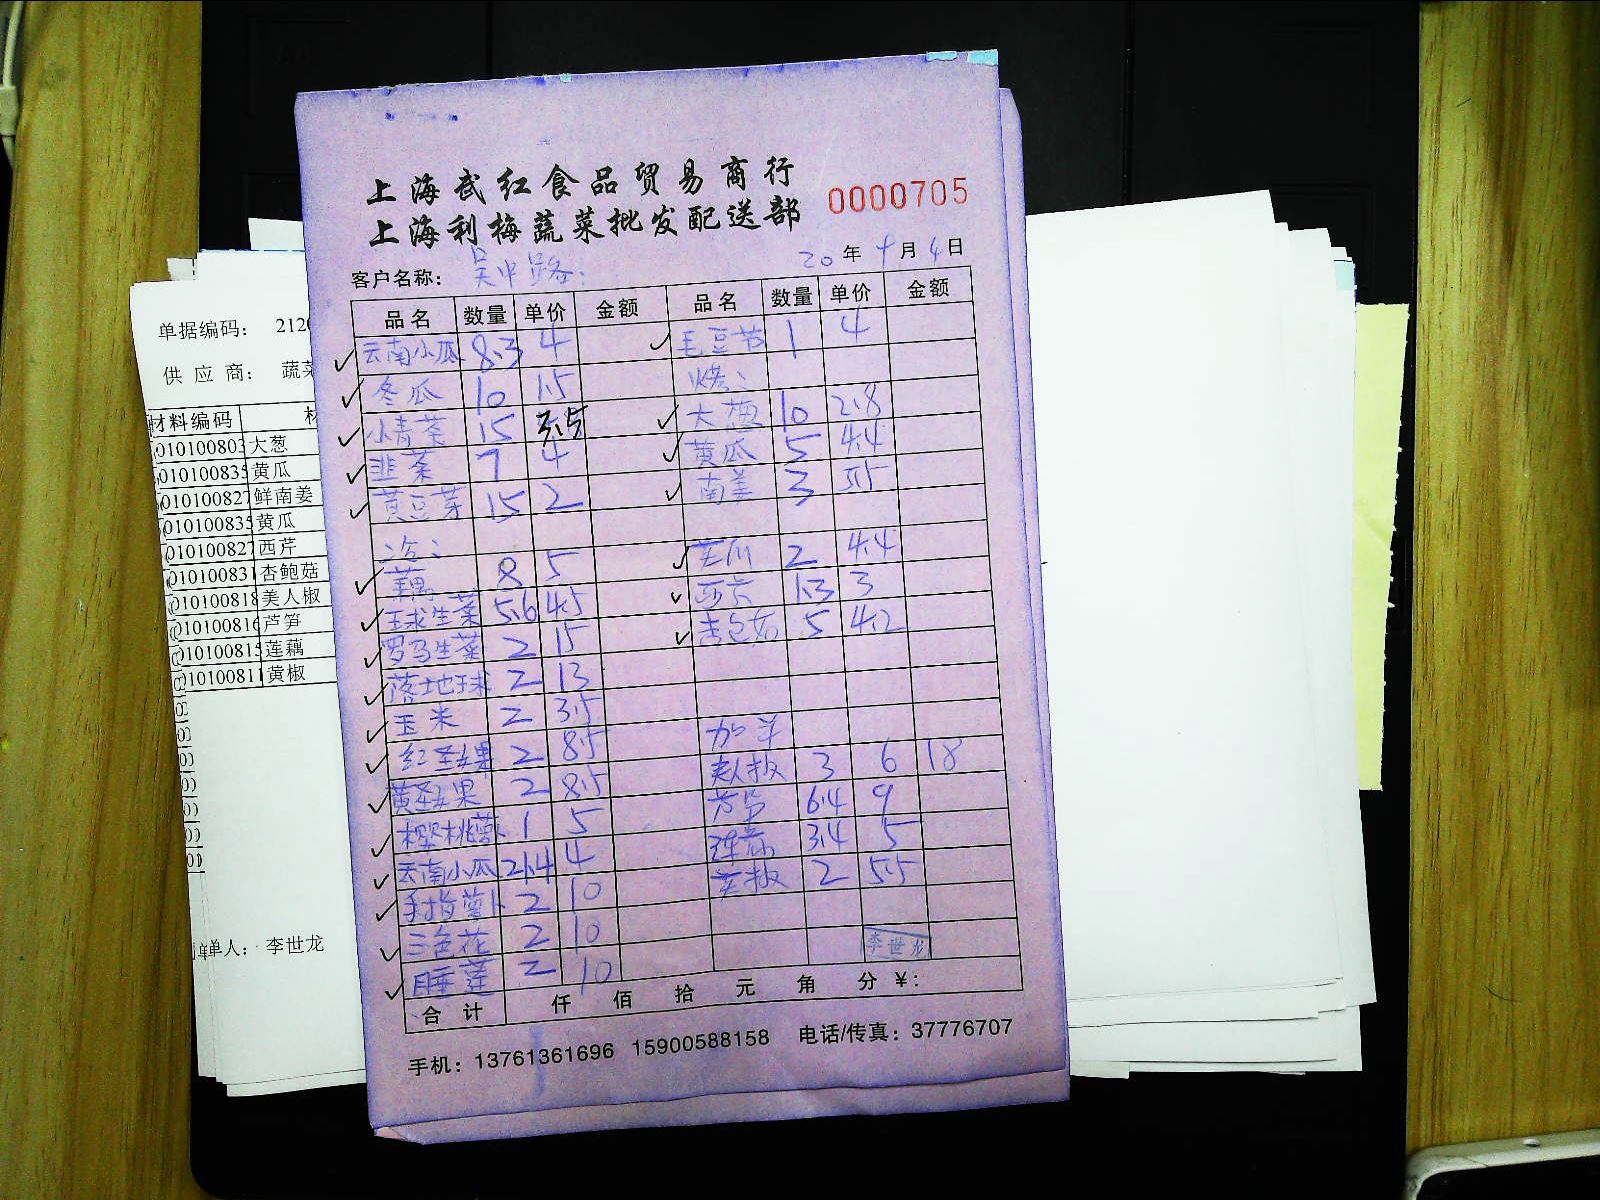 上海武红食品贸易商行
上海利梅蔬菜批发配送部
0000705
客户名称: 吴中路: 20年4月4日
品名 数量 单价 金额 品名 数量 单价 金额
云南小瓜 8.3 4 毛豆节 1 4
冬瓜 10 1.5 烤:
小青菜 15 3.5 大葱 10 2.8
韭菜 7 4 黄瓜 5 4.4
黄豆芽 15 2 南姜 3 5.5
冷:
藕 8 5 2 4.4
球生菜 5.6 4.5 西六 1.3 3
罗马生菜 2 15 杏包菇 5 4.2
落地球 2 13
玉米 2 3.5 加单
红圣女果 2 8.5 3 6 18
黄圣女果 2 8.5 芦笋 6.4 9
樱桃萝卜 1 5 3.4 5
云南小瓜 21.4 4 2 5.5
手指萝卜 2 10
三色花 2 10 李世龙
睡莲 2 10
合计 仟 佰 拾 元 角 分 ¥:
手机: 13761361696 15900588158 电话/传真: 37776707
单据编码: 212
供应商: 蔬菜
材料编码 材
010100803 大葱
010100835 黄瓜
010100827 鲜南姜
010100835 黄瓜
010100827 西芹
010100831 杏鲍菇
010100818 美人椒
010100816 芦笋
010100815 莲藕
010100811 黄椒
单人: 李世龙